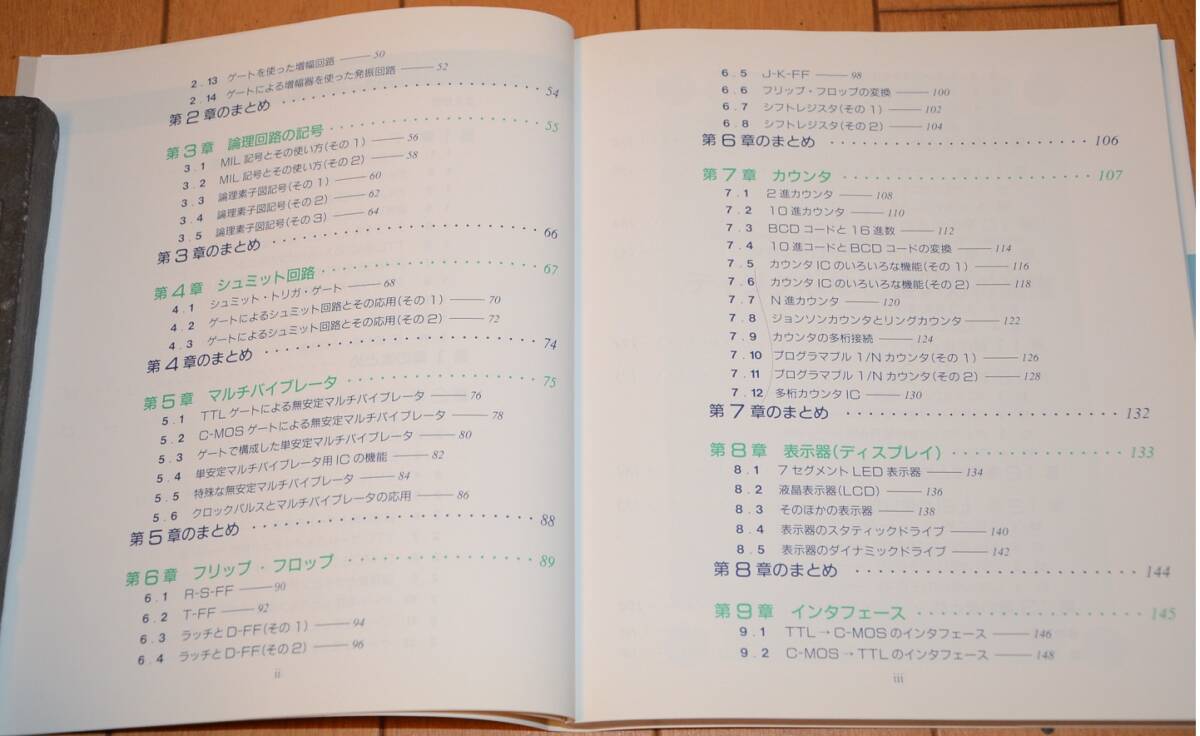 2.13 ゲートを使った増幅回路 —— 50
2.14 ゲートによる増幅器を使った発振回路 —— 52
第2章のまとめ ・・・・・・・・・・ 54
第3章 論理回路の記号 ・・・・・・・・・・ 55
3.1 MIL記号とその使い方(その1) —— 56
3.2 MIL記号とその使い方(その2) —— 58
3.3 論理素子図記号(その1) —— 60
3.4 論理素子図記号(その2) —— 62
3.5 論理素子図記号(その3) —— 64
第3章のまとめ ・・・・・・・・・・ 66
第4章 シュミット回路 ・・・・・・・・・・ 67
4.1 シュミット・トリガ・ゲート —— 68
4.2 ゲートによるシュミット回路とその応用(その1) —— 70
4.3 ゲートによるシュミット回路とその応用(その2) —— 72
第4章のまとめ ・・・・・・・・・・ 74
第5章 マルチバイブレータ ・・・・・・・・・・ 75
5.1 TTLゲートによる無安定マルチバイブレータ —— 76
5.2 C-MOSゲートによる無安定マルチバイブレータ —— 78
5.3 ゲートで構成した単安定マルチバイブレータ —— 80
5.4 単安定マルチバイブレータ用ICの機能 —— 82
5.5 特殊な無安定マルチバイブレータ —— 84
5.6 クロックパルスとマルチバイブレータの応用 —— 86
第5章のまとめ ・・・・・・・・・・ 88
第6章 フリップ・フロップ ・・・・・・・・・・ 89
6.1 R-S-FF —— 90
6.2 T-FF —— 92
6.3 ラッチとD-FF(その1) —— 94
6.4 ラッチとD-FF(その2) —— 96
ii
6.5 J-K-FF —— 98
6.6 フリップ・フロップの変換 —— 100
6.7 シフトレジスタ(その1) —— 102
6.8 シフトレジスタ(その2) —— 104
第6章のまとめ ・・・・・・・・・・ 106
第7章 カウンタ ・・・・・・・・・・ 107
7.1 2進カウンタ —— 108
7.2 10進カウンタ —— 110
7.3 BCDコードと16進数 —— 112
7.4 10進コードとBCDコードの変換 —— 114
7.5 カウンタICのいろいろな機能(その1) —— 116
7.6 カウンタICのいろいろな機能(その2) —— 118
7.7 N進カウンタ —— 120
7.8 ジョンソンカウンタとリングカウンタ —— 122
7.9 カウンタの多桁接続 —— 124
7.10 プログラマブル1/Nカウンタ(その1) —— 126
7.11 プログラマブル1/Nカウンタ(その2) —— 128
7.12 多桁カウンタIC —— 130
第7章のまとめ ・・・・・・・・・・ 132
第8章 表示器(ディスプレイ) ・・・・・・・・・・ 133
8.1 7セグメントLED表示器 —— 134
8.2 液晶表示器(LCD) —— 136
8.3 そのほかの表示器 —— 138
8.4 表示器のスタティックドライブ —— 140
8.5 表示器のダイナミックドライブ —— 142
第8章のまとめ ・・・・・・・・・・ 144
第9章 インタフェース ・・・・・・・・・・ 145
9.1 TTL→C-MOSのインタフェース —— 146
9.2 C-MOS→TTLのインタフェース —— 148
iii